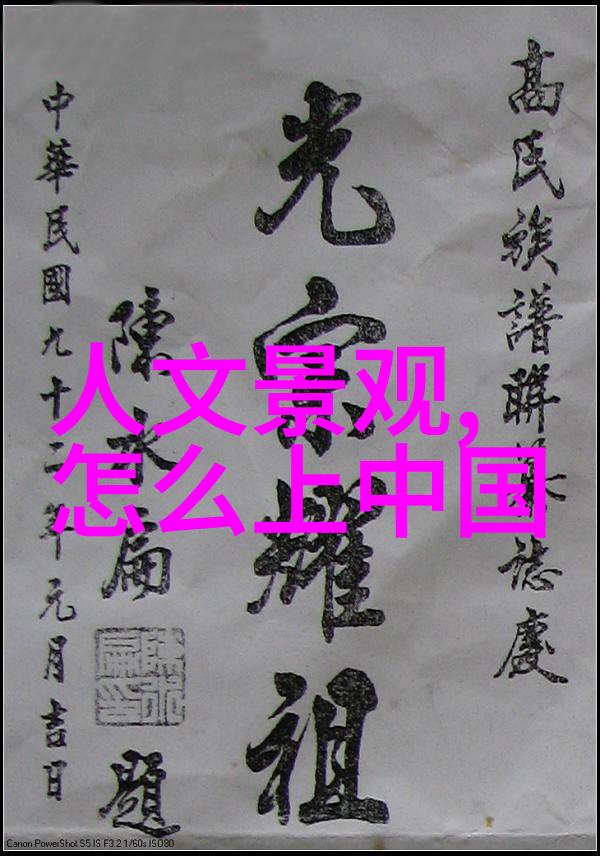 高氏族譜聯誌慶
光宗耀祖
陳水扁題
陳水扁印
中華民國九十二年元月吉日
人文景观,
怎么上中国
Canon PowerShot S5 IS F3.2 1/60s ISO80